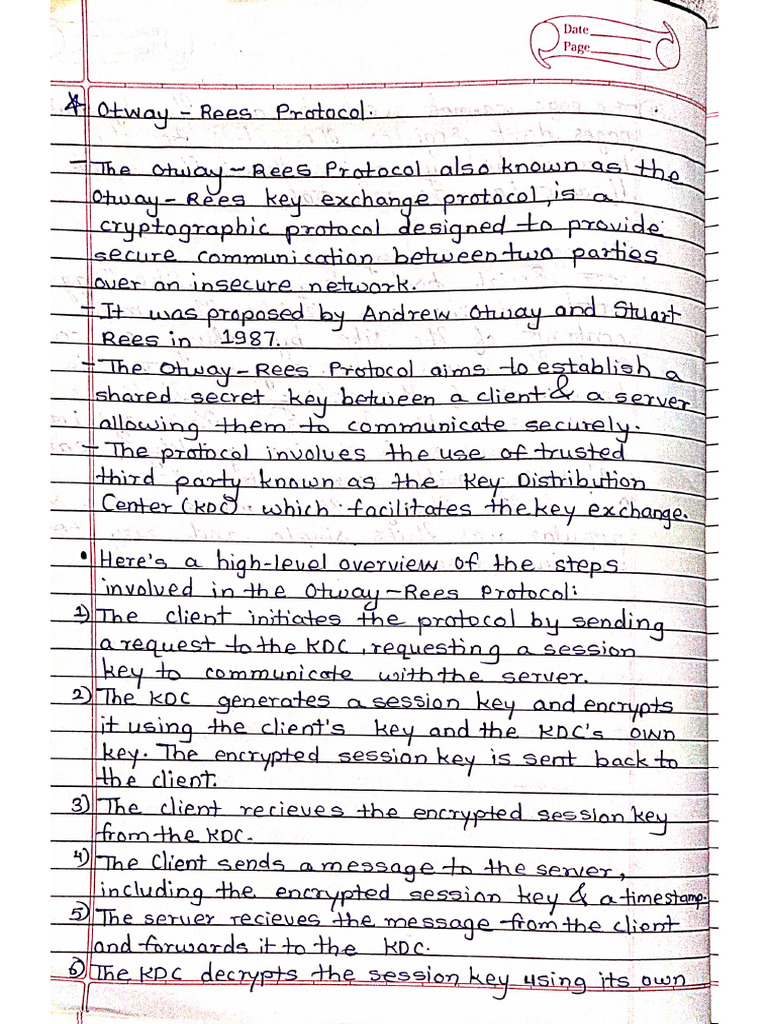 Date
Page
* Otway - Rees Protocol.
- The Otway - Rees Protocol also known as the
Otway - Rees key exchange protocol, is a
cryptographic protocol designed to provide
secure communication between two parties
over an insecure network.
- It was proposed by Andrew Otway and Stuart
Rees in 1987.
- The Otway - Rees Protocol aims to establish a
shared secret key between a client & a server
allowing them to communicate securely.
- The protocol involves the use of trusted
third party known as the Key Distribution
Center (KDC). which facilitates the key exchange.
• Here's a high-level overview of the steps
involved in the Otway - Rees Protocol:
1) The client initiates the protocol by sending
a request to the KDC, requesting a session
key to communicate with the server.
2) The KDC generates a session key and encrypts
it using the client's key and the KDC's own
key. The encrypted session key is sent back to
the client.
3) The client recieves the encrypted session key
from the KDC.
4) The Client sends a message to the server,
including the encrypted session key & a timestamp.
5) The server recieves the message from the client
and forwards it to the KDC.
6) The KDC decrypts the session key using its own